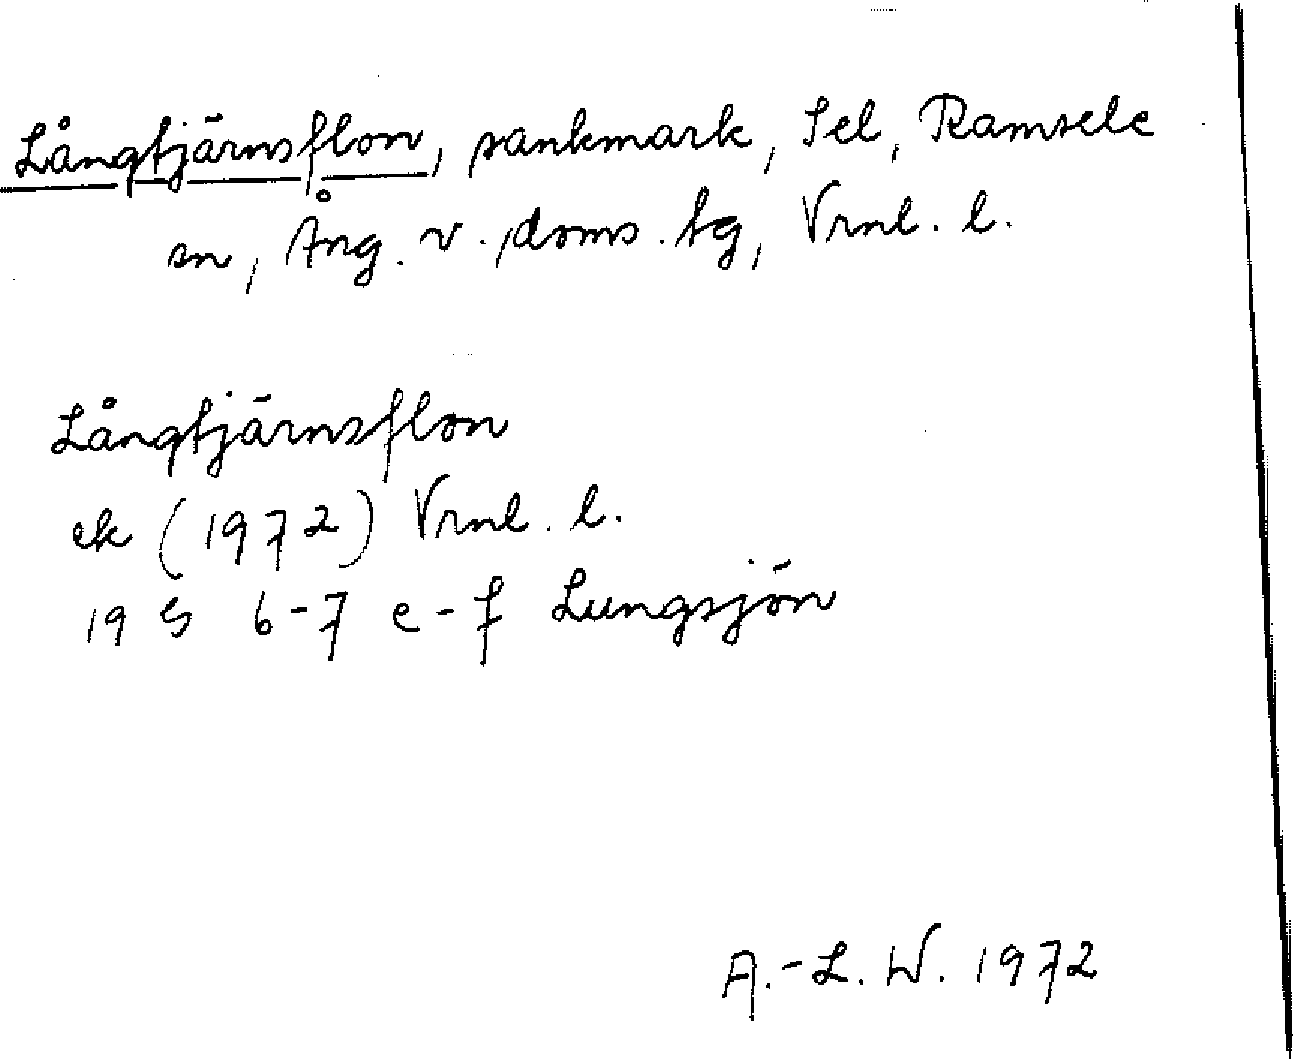 Långtjärnsflon, sankmark, Sel, Ramsele
sn, Ång. v. doms. tg, Vrnl. l.
Långtjärnsflon
ek (1972) Vrnl. l.
19 G 6-7 e-f Lungsjön
A.-L. W. 1972